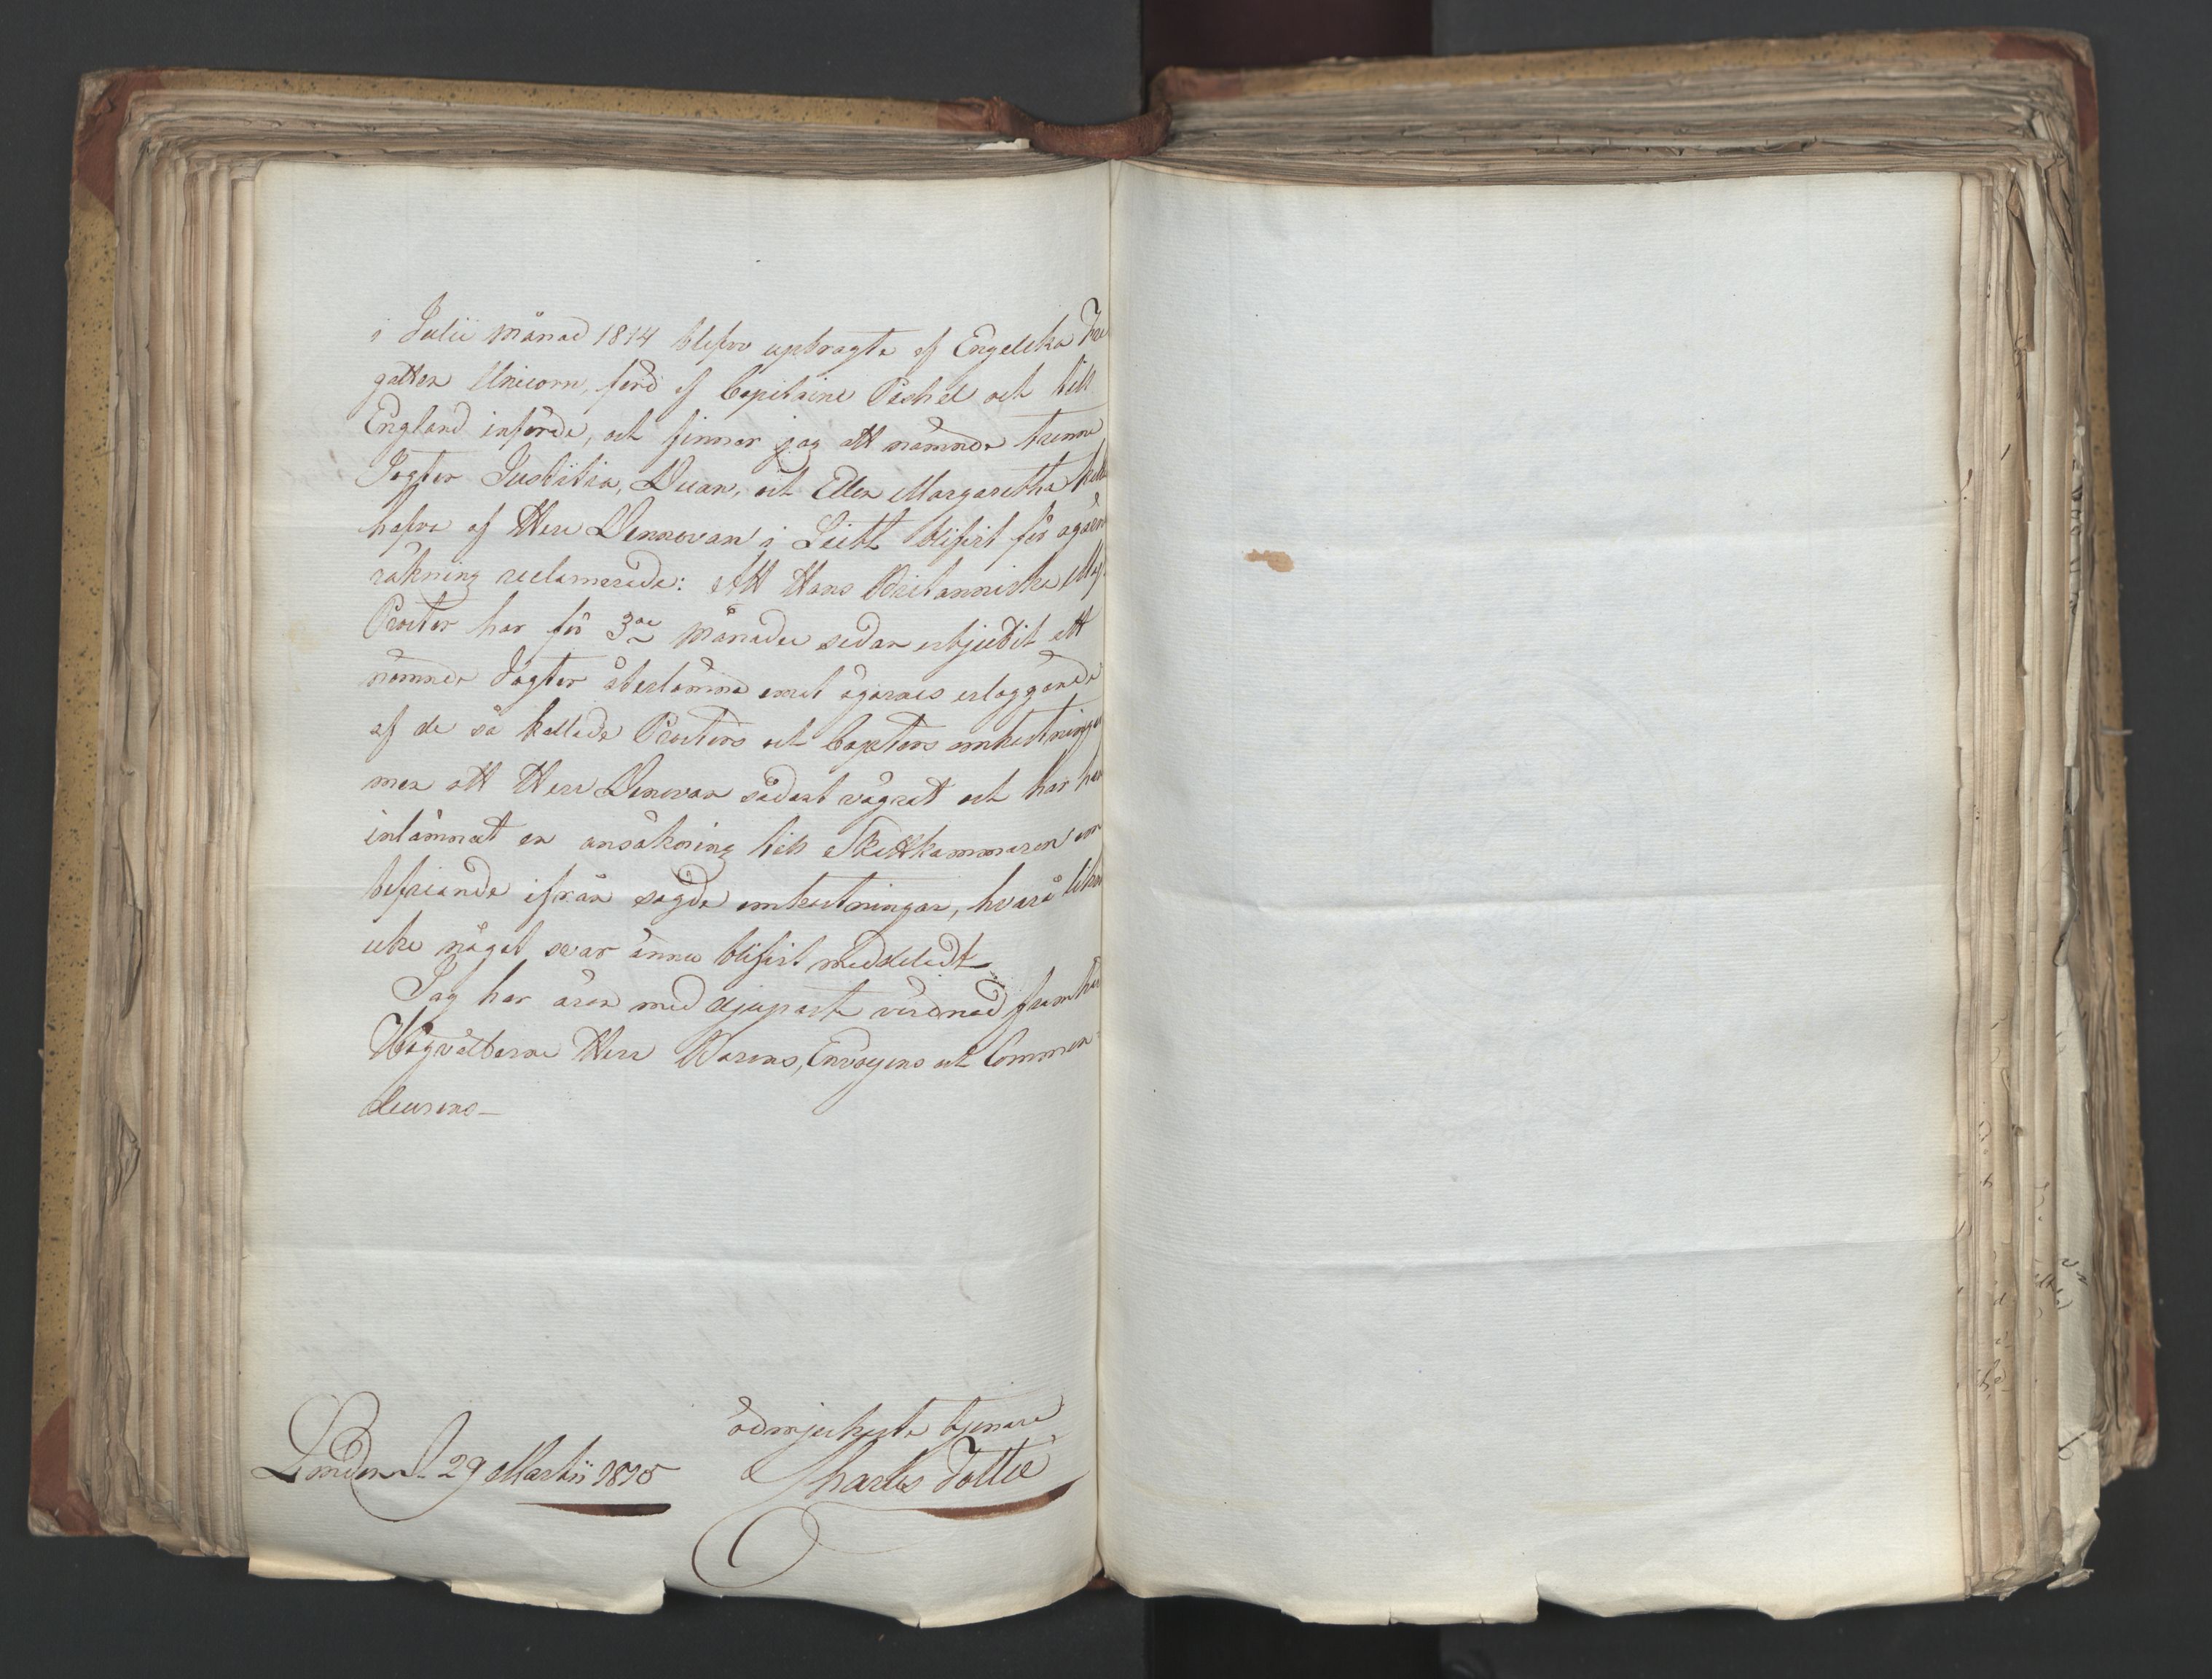 i Julii månad 1814 blefvo upbragte af Engelska Fre
gatten Unicorn, förd af Capitaine Pechel och till
England införde, och finner jag att nämnde trenne
Jagter Justitia, Duan, och Ellen Margaretha
hafva af Herr Dennovan i Leith blifvit för ägarns
räkning reclamerade: Att Hans Britanniska Maj:
Procter har för 3ne månader sedan erbjudit att
nämnde Jagter återlämna emot ägarnes erläggande
af de så kallade Proctors och Captors omkostningar
men att Herr Denovan sådant vägrat och har han
inlämnat en ansökning till Skattkammaren om
befriande ifrån sagde omkostningar, hvarå
icke något svar ännu blifvit meddeladt
Jag har äran med djupaste vördnad framhärda
Högvälborne Herr Barons, Envoyens och Commen-
deurens
ödmjukaste tjenare
Charles Tottie
London d. 29 Martii 1815